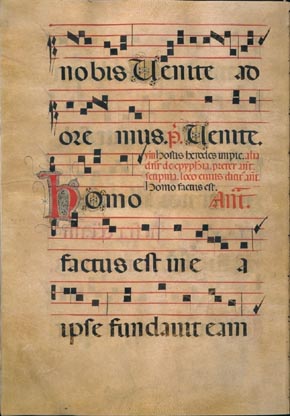 nobis Uenite ad
ore mus. p̃. Uenite.
ẏm̃ Hostis herodes impie. alia
dist̃ de epyph̃ia. preter añt.
scriptam. loco cuius dicit̃ añt.
Homo factus est.
homo Añt.
factus est in e a
ipse fundauit eam